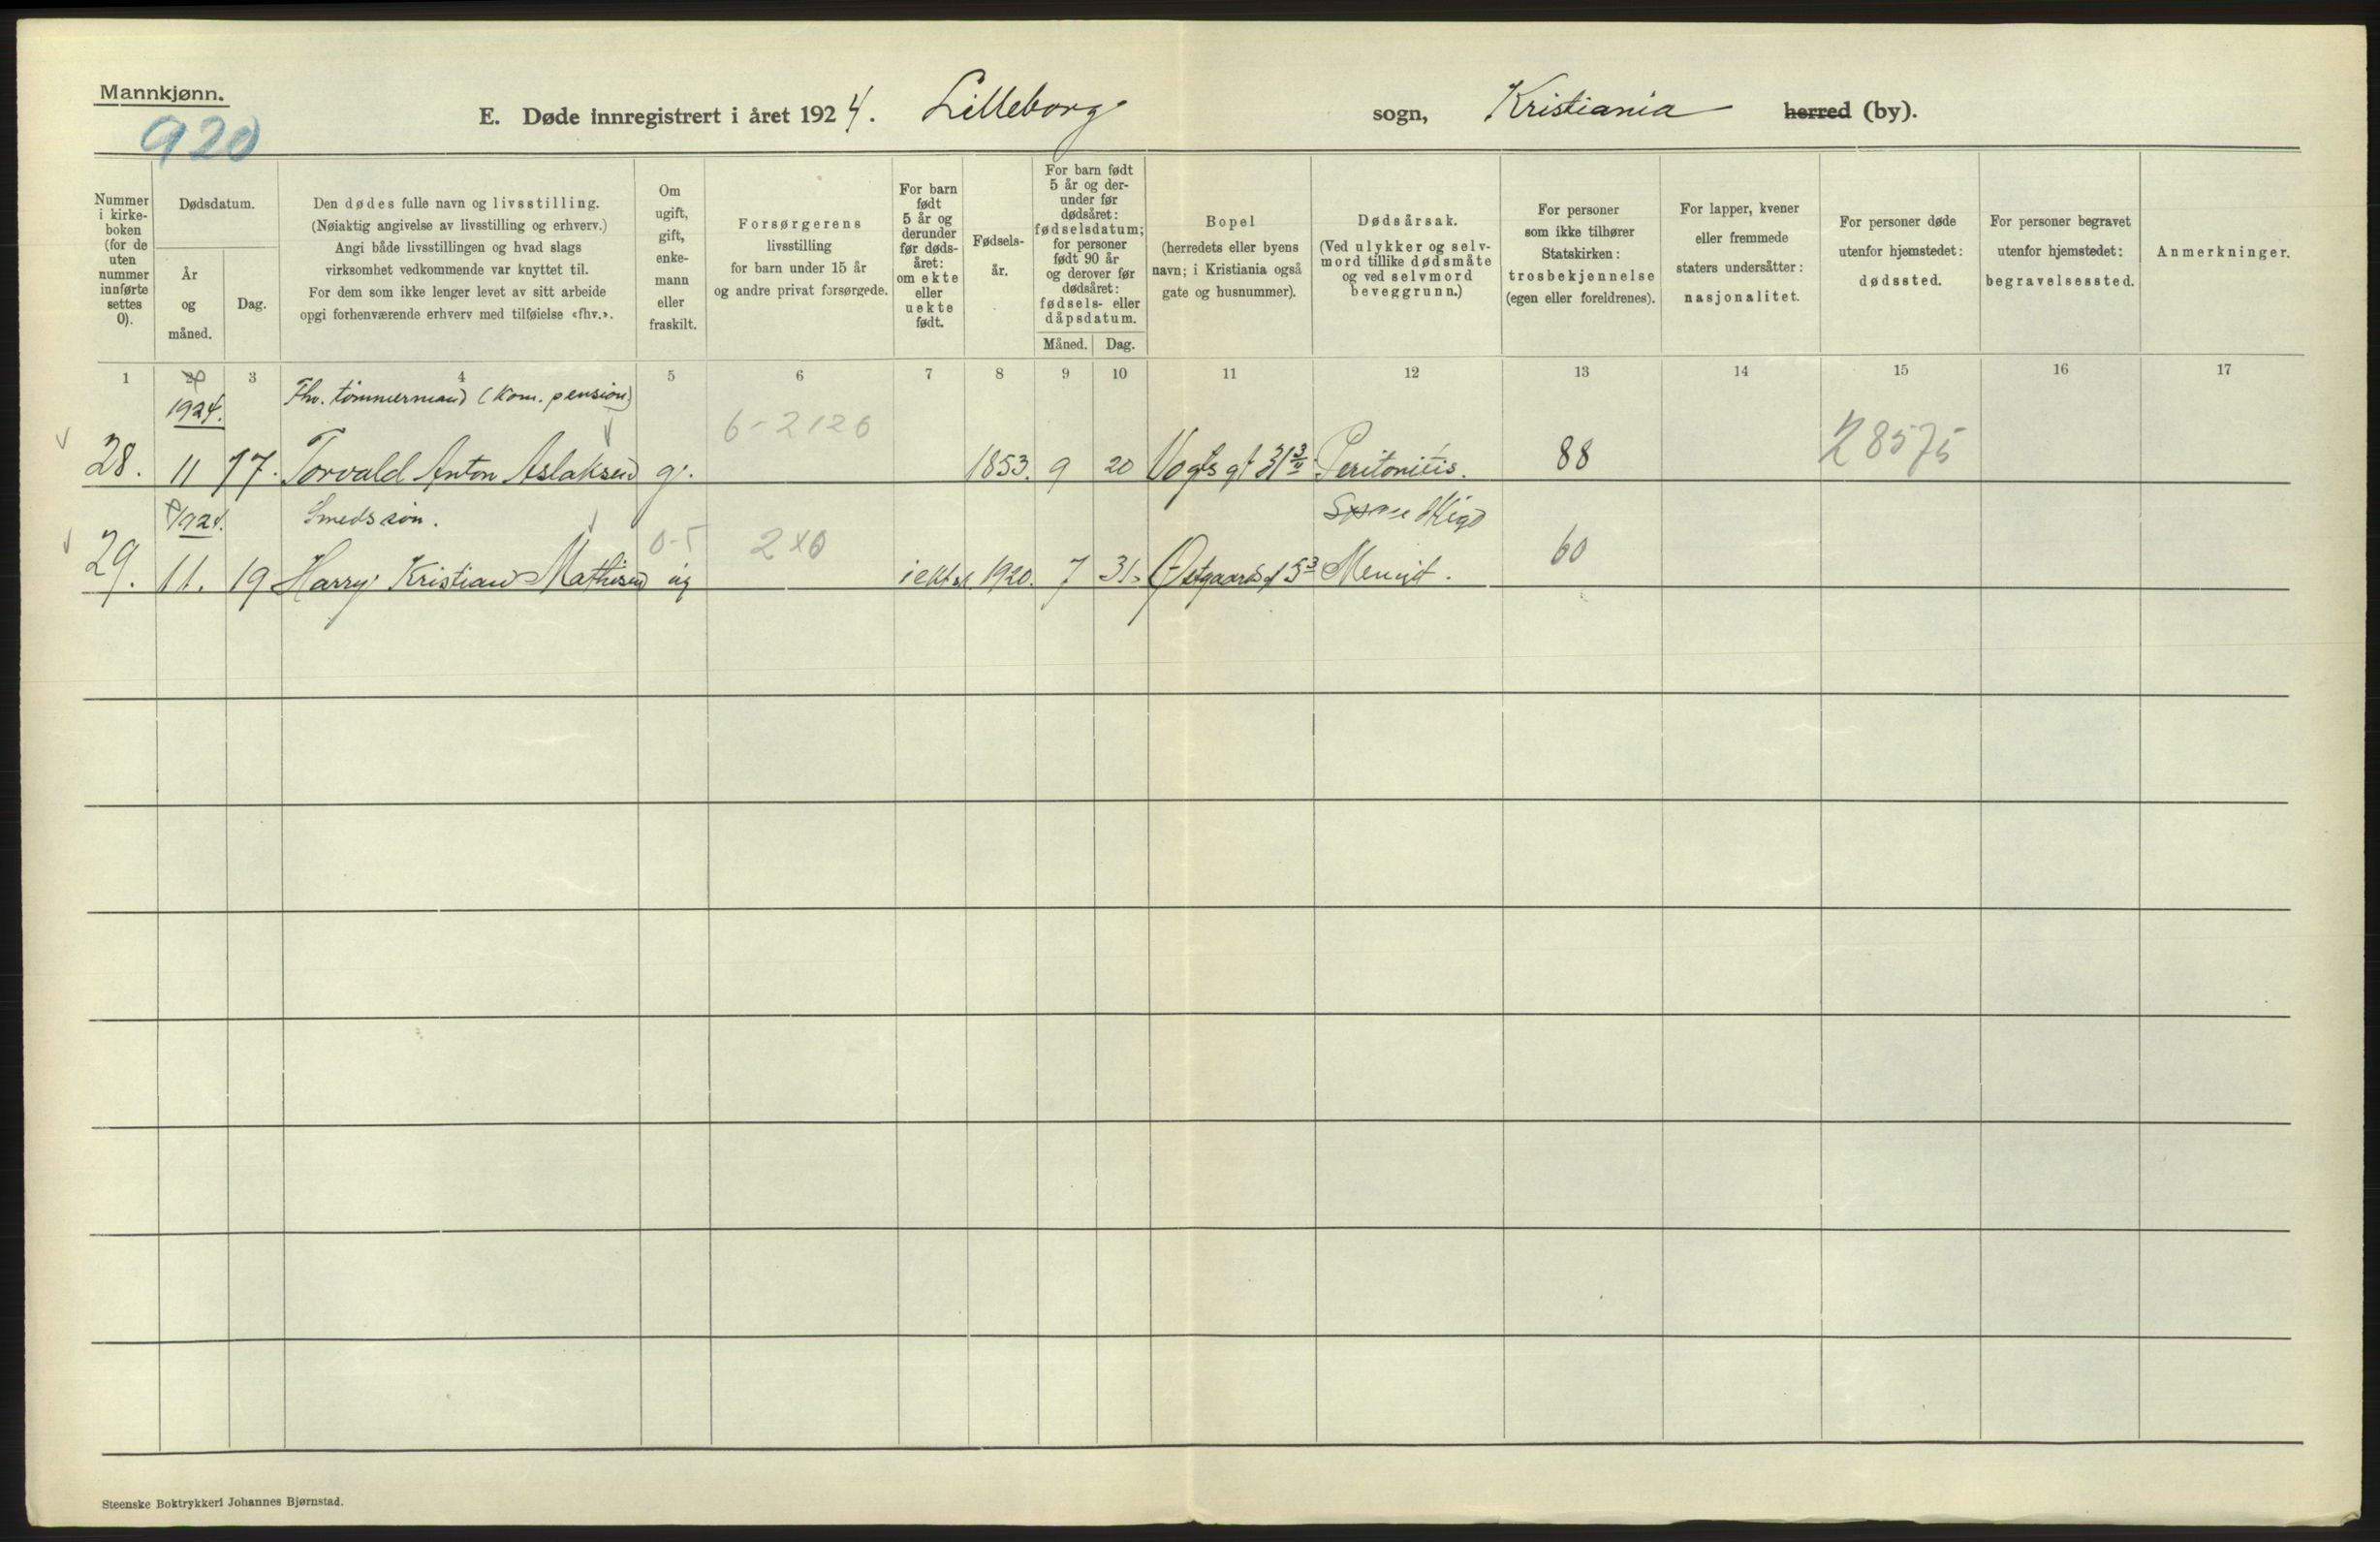 Mannkjønn.
920
E. Døde innregistrert i året 1924. Lilleborg sogn, Kristiania herred (by).
Nummer i kirke- boken (for de uten nummer innførte settes 0).
Dødsdatum.
År og måned.
Dag.
Den dødes fulle navn og livsstilling.
(Nøiaktig angivelse av livsstilling og erhverv.)
Angi både livsstillingen og hvad slags
virksomhet vedkommende var knyttet til.
For dem som ikke lenger levet av sitt arbeide
opgi forhenværende erhverv med tilføielse «fhv.».
Om ugift, gift, enke- mann eller fraskilt.
Forsørgerens
livsstilling
for barn under 15 år
og andre privat forsørgede.
For barn født 5 år og derunder før døds- året: om ekte eller uekte født.
Fødsels- år.
For barn født 5 år og der- under før dødsåret: fødselsdatum; for personer født 90 år og derover før dødsåret: fødsels- eller dåpsdatum.
Måned. Dag.
Bopel
(herredets eller byens
navn; i Kristiania også
gate og husnummer).
Dødsårsak.
(Ved ulykker og selv-
mord tillike dødsmåte
og ved selvmord
beveggrunn.)
For personer
som ikke tilhører
Statskirken:
trosbekjennelse
(egen eller foreldrenes).
For lapper, kvener
eller fremmede
staters undersåtter:
nasjonalitet.
For personer døde
utenfor hjemstedet:
dødssted.
For personer begravet
utenfor hjemstedet:
begravelsessted.
Anmerkninger.
1 3 4 5 6 7 8 9 10 11 12 13 14 15 16 17
1924. Fhv. tømmermand (Kom. pension)
6-2126
28. 11 17. Torvald Anton Aslaksen g. 1853. 9 20 Vogts gt 31 Peritonitis. 88 28575
1924. Smeds søn.
0-5 2x0
29. 11. 19 Harry Kristian Mathisen ug i ektsk. 1920. 7 31. Østgaards gt 5 Mengit. 60
Steenske Boktrykkeri Johannes Bjørnstad.